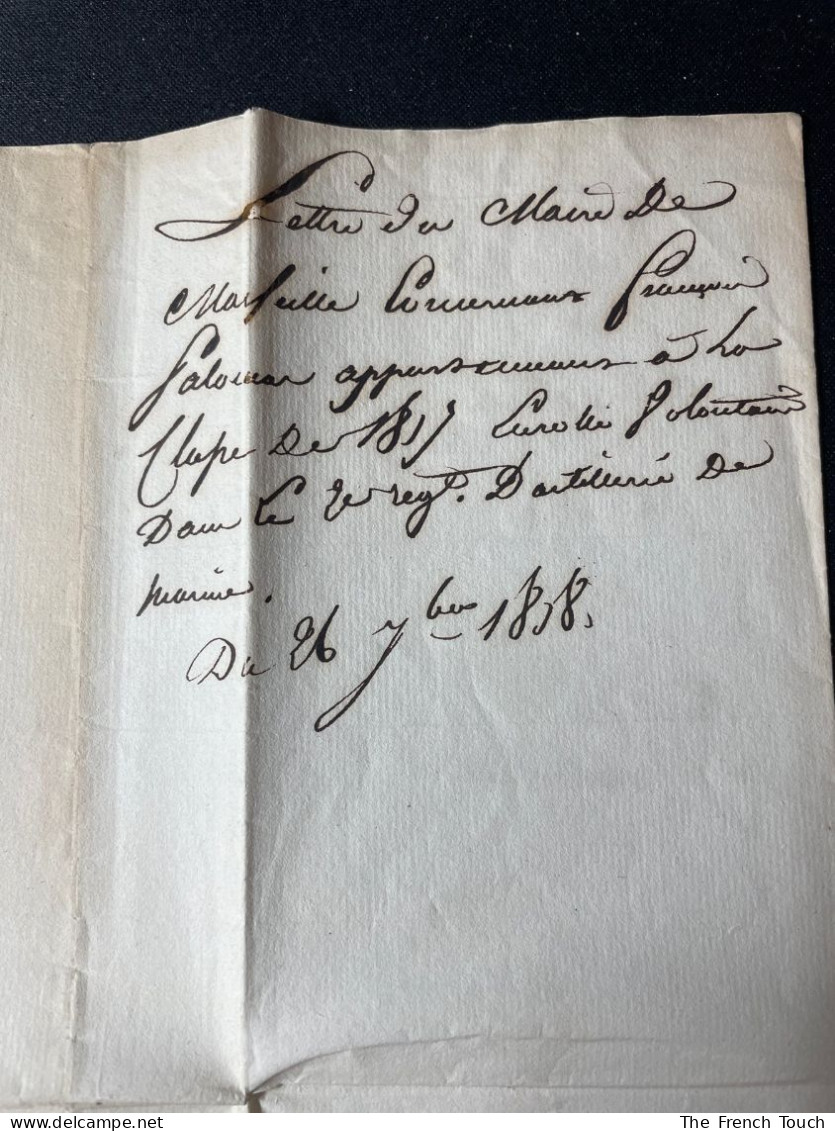 Lettre du Maire de
Marseille Concernant François
appartenant à La
Classe de 1817 Enrollé Volontaire
Dans Le 2e regt. D'artillerie de
marine.
Du 26 7bre 1818.
The French Touch